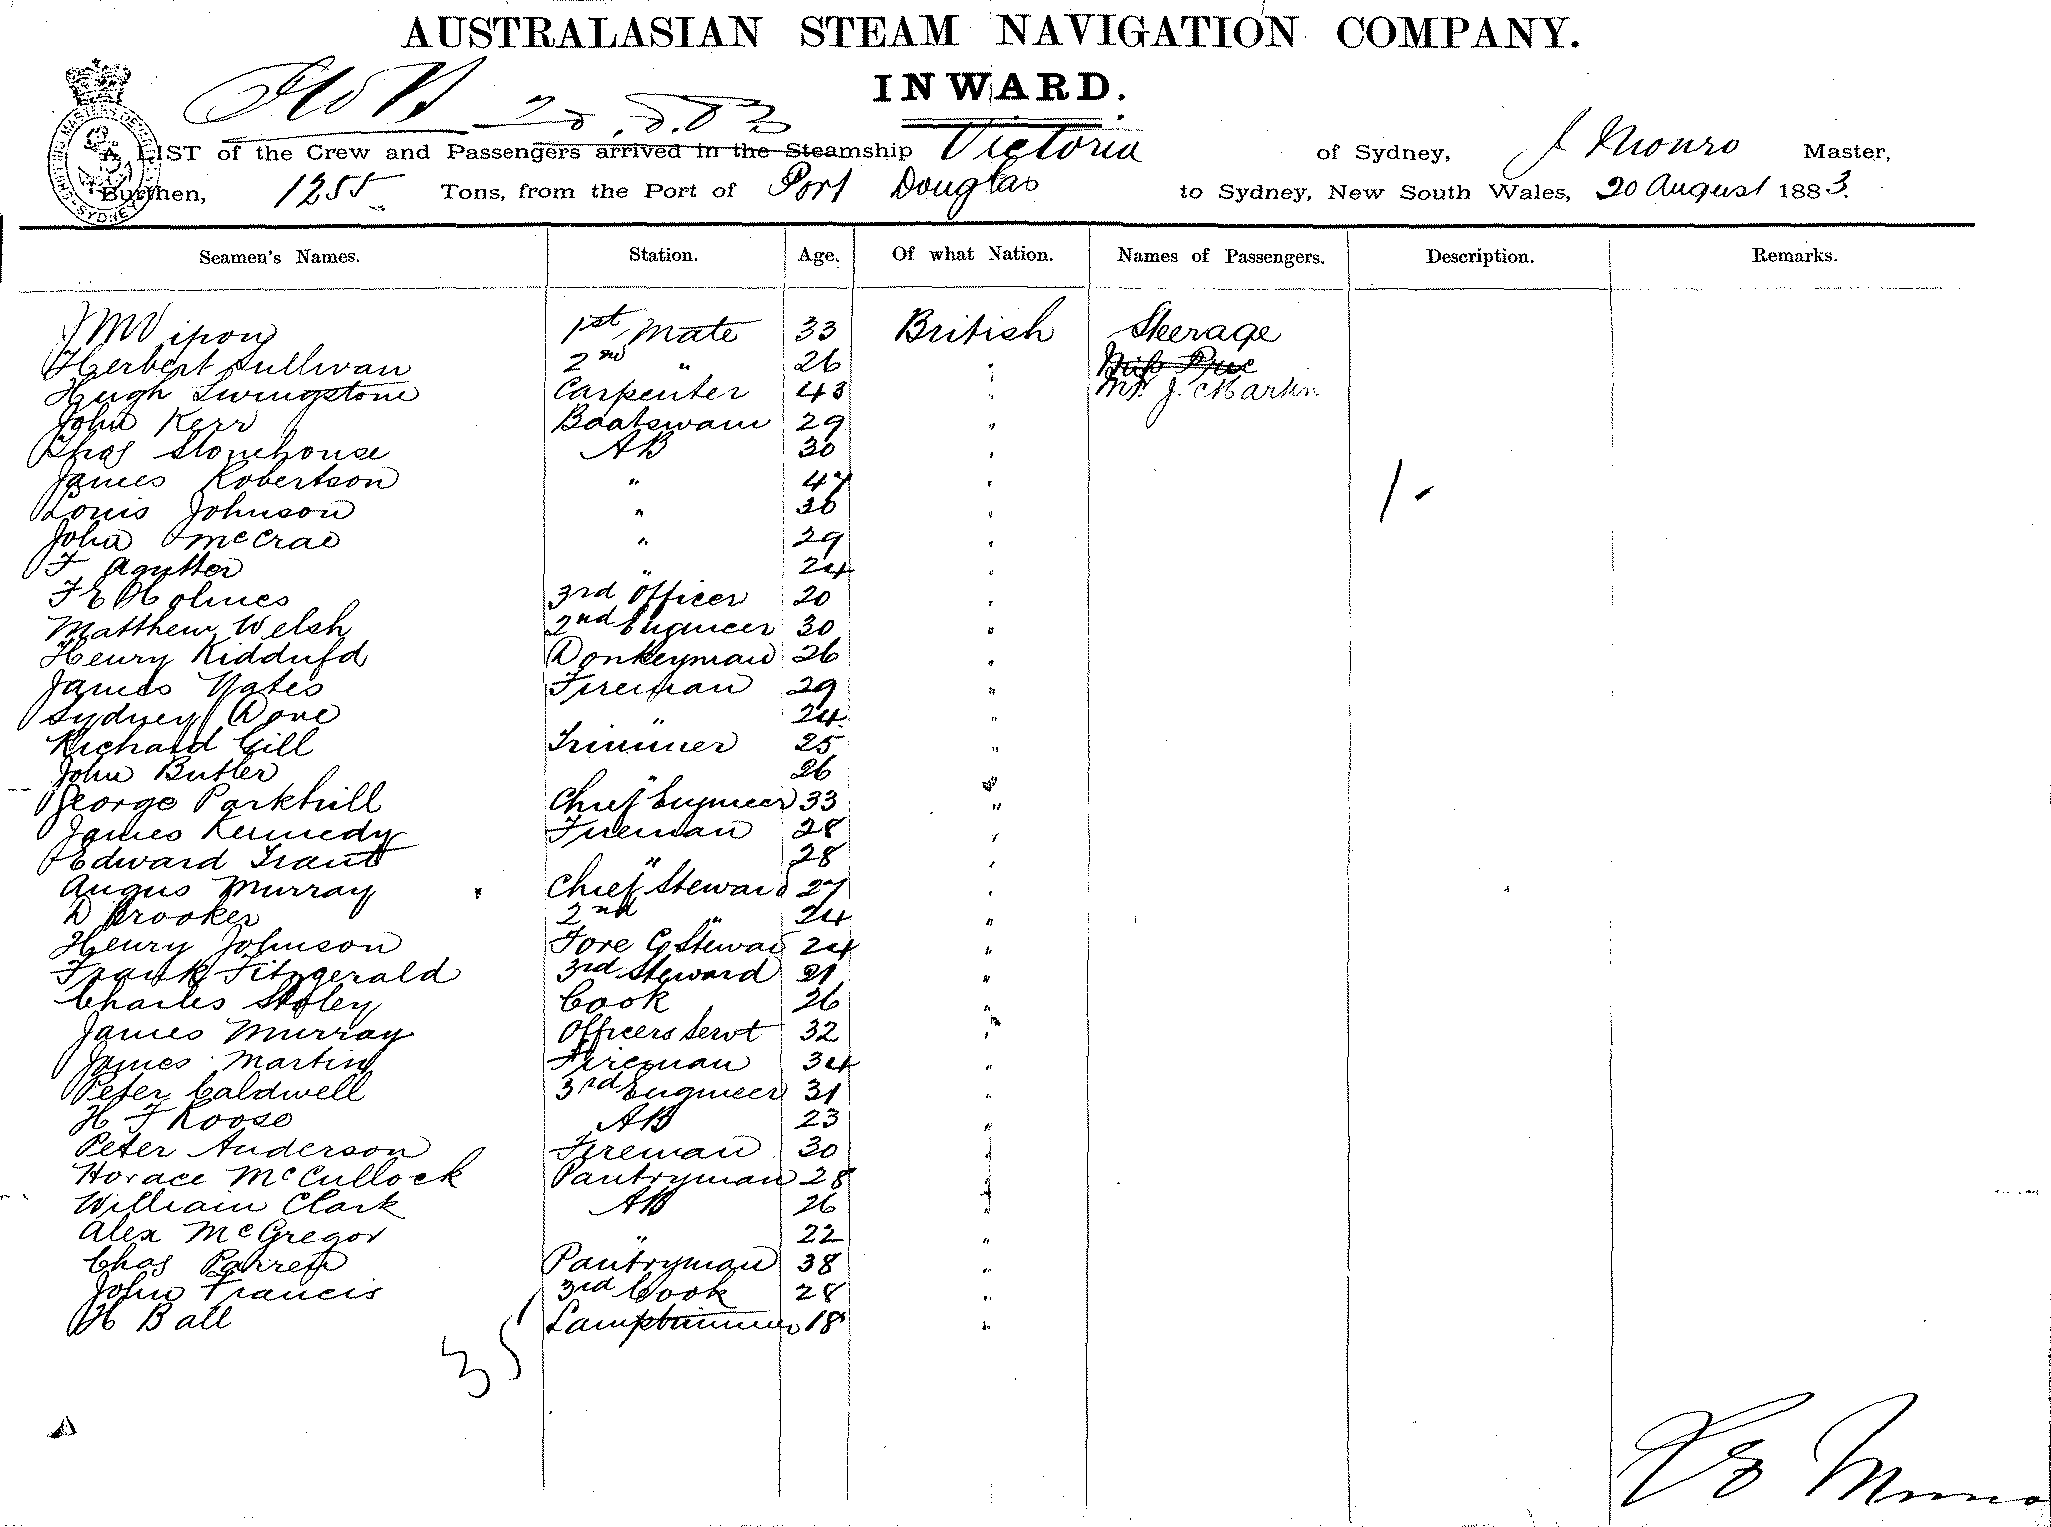 AUSTRALASIAN STEAM NAVIGATION COMPANY.
INWARD.
20.8.83
A LIST of the Crew and Passengers arrived in the Steamship Victoria of Sydney, J Monro Master,
Burthen, 1255 Tons, from the Port of Port Douglas to Sydney, New South Wales, 20 August 1883.
Seamen's Names. Station. Age. Of what Nation. Names of Passengers. Description. Remarks.
1st Mate 33 British Steerage
Herbert Sullivan 2nd " 26 "
Hugh Livingstone Carpenter 43 " Mr. J. Martin
John Kerr Boatswain 29 "
Chas Stonehouse AB 30 "
James Robertson " 47 "
Louis Johnson " 36 "
John McCrae " 29 "
F Agutter " 24 "
F E Holmes 3rd Officer 20 "
Matthew Welsh 2nd Engineer 30 "
Henry Donkeyman 26 "
James Yates Fireman 29 "
Sydney Dove " 24 "
Richard Gill Trimmer 25 "
John Butler " 26 "
George Parkhill Chief Engineer 33 "
James Kennedy Fireman 28 "
Edward Trant " 28 "
Angus Murray Chief Steward 27 "
D Brooker 2nd " 24 "
Henry Johnson Fore C Stewad 24 "
Frank Fitzgerald 3rd Steward 21 "
Charles Cook 26 "
James Murray Officers Servt 32 "
James Martin Fireman 34 "
Peter Caldwell 3rd Engineer 31 "
H F Roose AB 23 "
Peter Anderson Fireman 30 "
Horace McCullock Pantryman 28 "
William Clark AB 26 "
Alex McGregor " 22 "
Chas Pantryman 38 "
John Francis 3rd Cook 28 "
H Ball Lamptrimmer 18 "
35